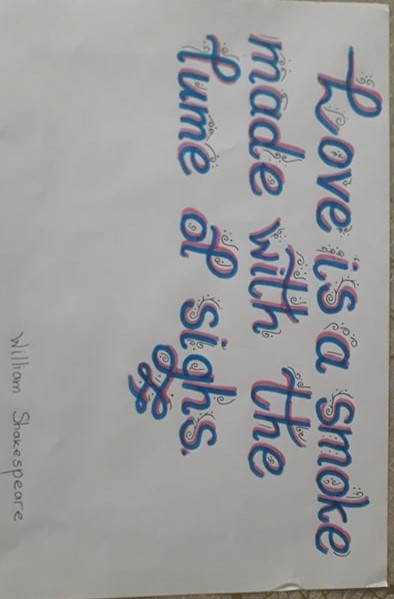 Love is a smoke
made with the
fume of sighs.
William Shakespeare